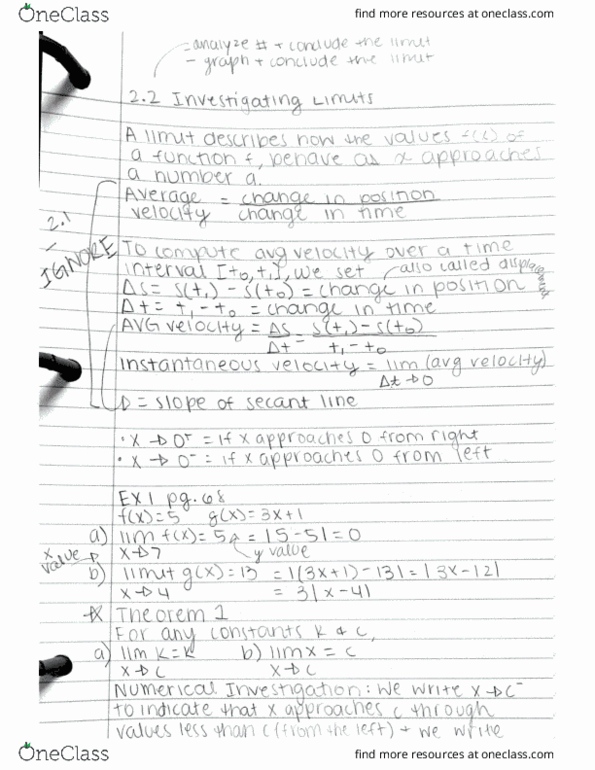 OneClass
find more resources at oneclass.com
- analyze # + conclude the limit
- graph + conclude the limit
2.2 Investigating Limits
A limit describes how the values f(x) of
a function f, behave as x approaches
a number a.
2.1
IGNORE
Average velocity = change in position / change in time
To compute avg velocity over a time
interval [t₀, t₁], we set
also called displacement
Δs = s(t₁) - s(t₀) = change in position
Δt = t₁ - t₀ = change in time
AVG velocity = Δs/Δt = s(t₁) - s(t₀) / t₁ - t₀
instantaneous velocity = lim (avg velocity)
Δt → 0
= slope of secant line
• x → 0⁺ = if x approaches 0 from right
• x → 0⁻ = if x approaches 0 from left
EX 1 pg. 68
f(x) = 5 g(x) = 3x+1
a) lim f(x) = 5 = |5-5| = 0
x → 7
y value
x value
b) limit g(x) = 13 = |(3x+1) - 13| = |3x-12|
x → 4 = 3|x-4|
Theorem 1
For any constants k & c,
a) lim k = k b) lim x = c
x → c x → c
Numerical Investigation: We write x → c⁻
to indicate that x approaches c through
values less than c (from the left) + we write
OneClass
find more resources at oneclass.com